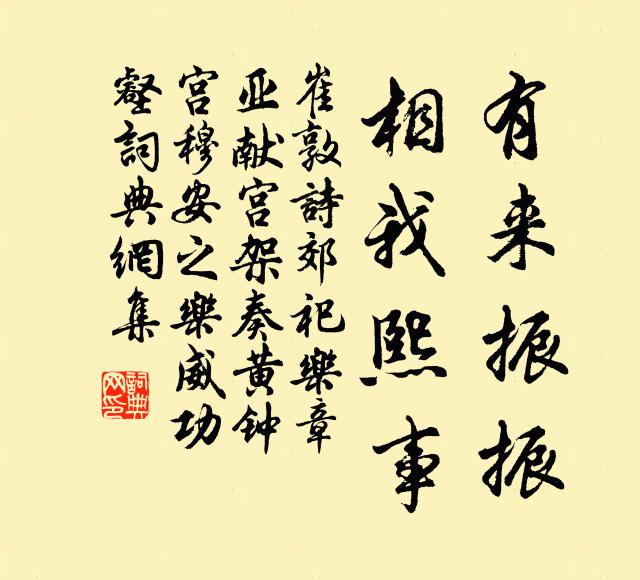 有来振振
相我熙事
崔敦詩郊祀樂章
亚献宫架奏黄钟
宫穆安之樂威功
壑詞典網集
詞典
网印